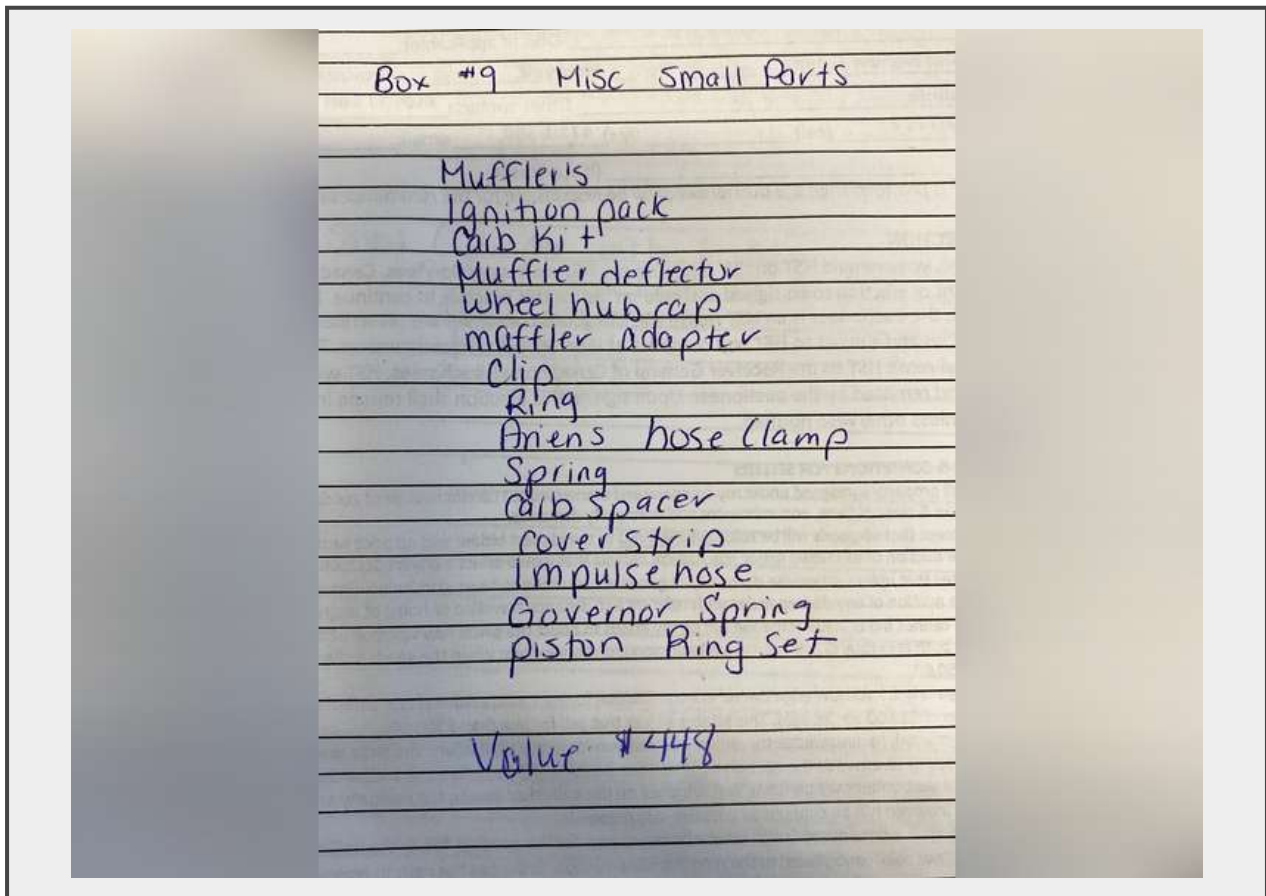 Box #9 Misc Small Parts
Muffler's
Ignition pack
Carb Kit
Muffler deflector
wheel hub cap
maffler adapter
Clip
Ring
Ariens hose Clamp
Spring
Carb Spacer
cover strip
Impulse hose
Governor Spring
piston Ring Set
Value $448